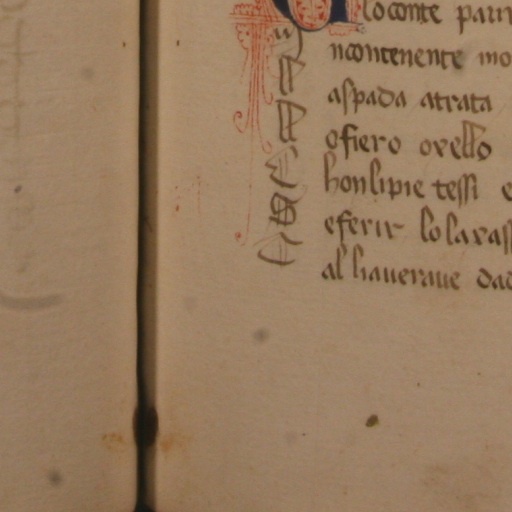 lo conte parir
ncontenente mo
aspada atrata
ofiero ovello
honlipie tessi e
eferir lo la rass
al haveraue dad